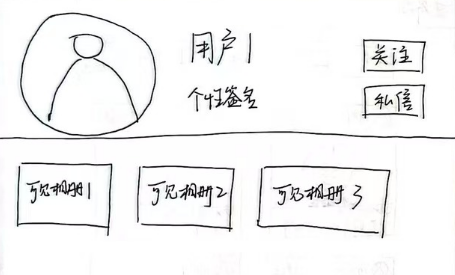 用户1
关注
个性签名
私信
可见相册1
可见相册2
可见相册3